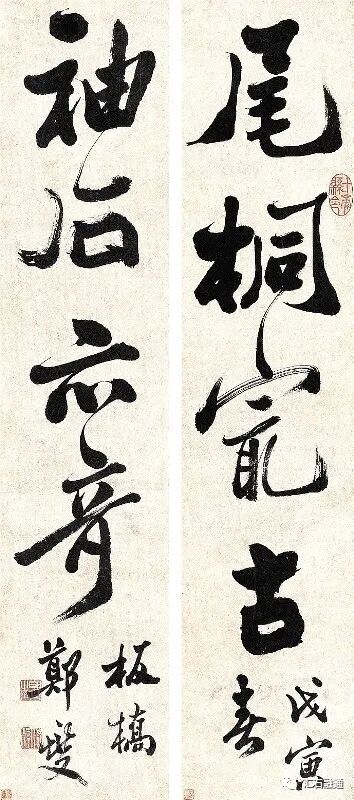 尾桐最古
戊寅
春
袖石亦奇
板橋
鄭燮